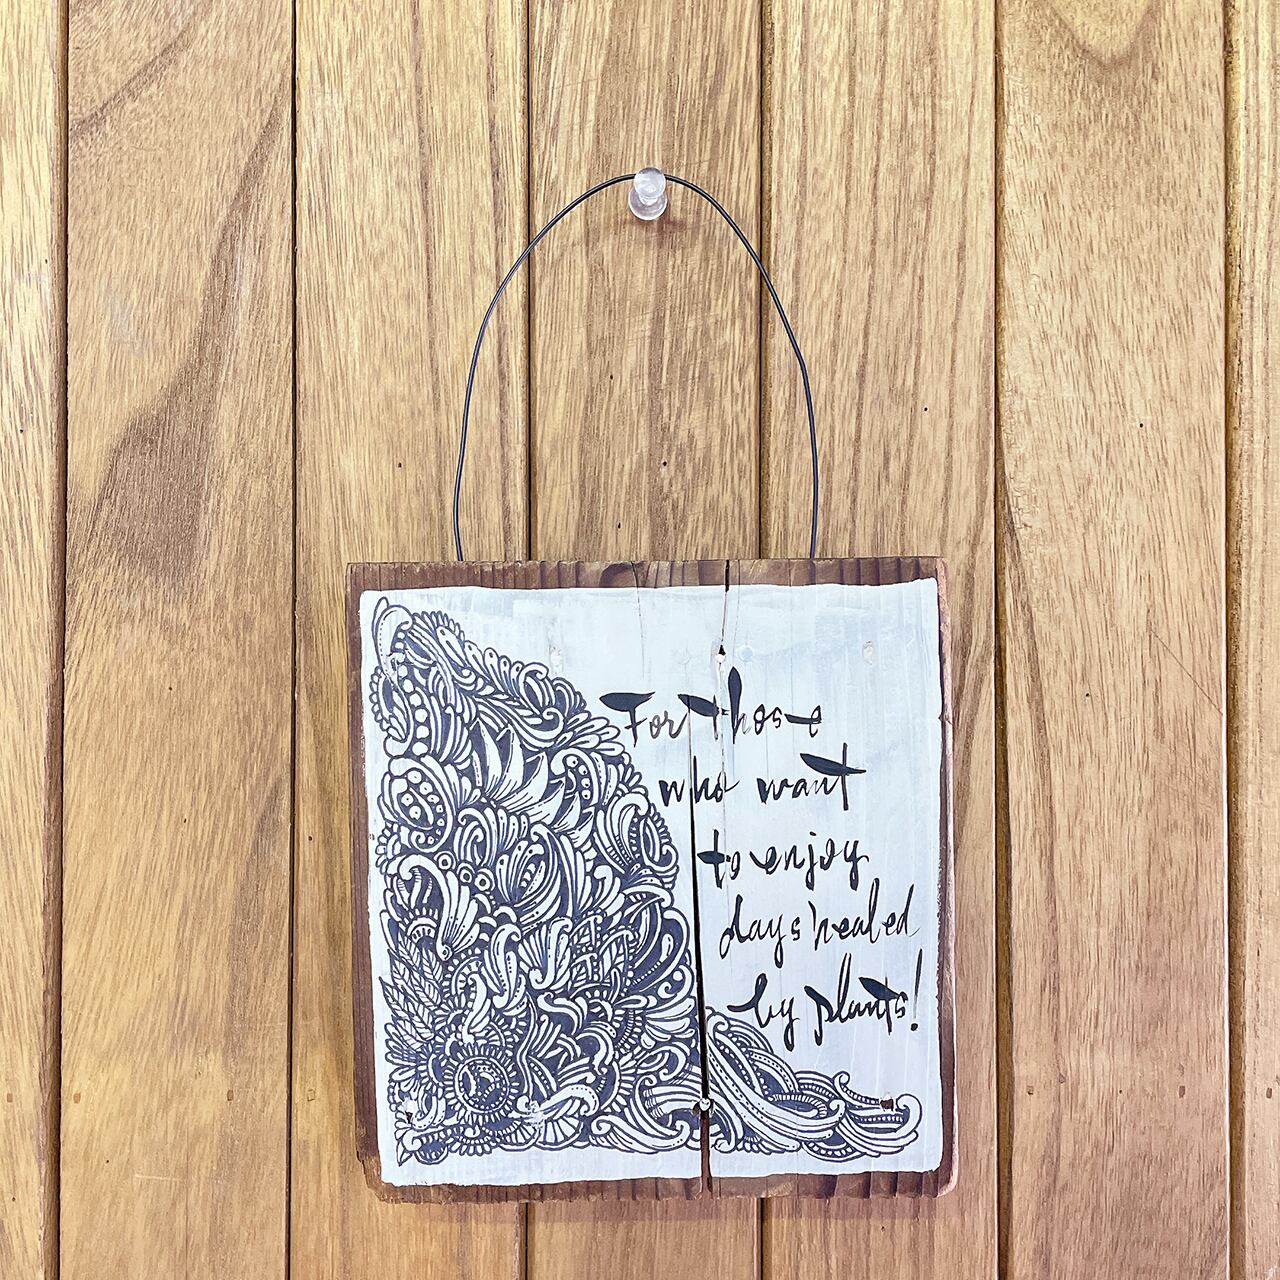 For those
who want
to enjoy
days healed
by plants!